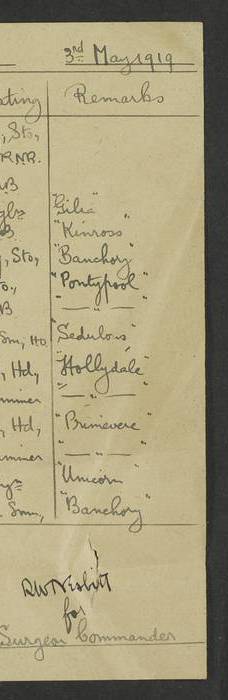 3rd May 1919
ting Remarks
, Sto,
RNR.
B
"Gilia"
B "Kinross"
, Sto, "Banchory"
"Pontypool"
o., " — " —
B
Sm, HO "Sedulous"
, Hd, "Hollydale"
" — " —
immer
, Hd, "Primevere"
immer " — " —
"Unicorn"
Smn, "Banchory"
RW Nesbitt
for
Surgeon Commander